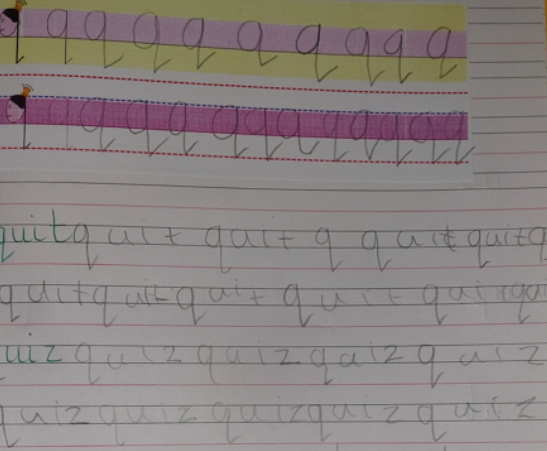 q q q q q q q q q q
q q q q q q q q q q q q
quit quit quit q quit quit q
quit quit quit quit quit qui
uiz quiz quiz qaiz quiz
quiz quiz quiz quiz quiz